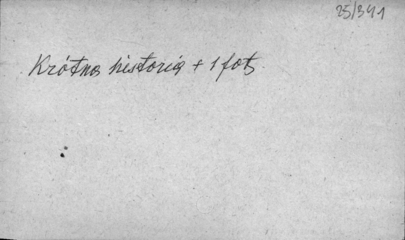 25/341
Krótka historia + 1 fot.